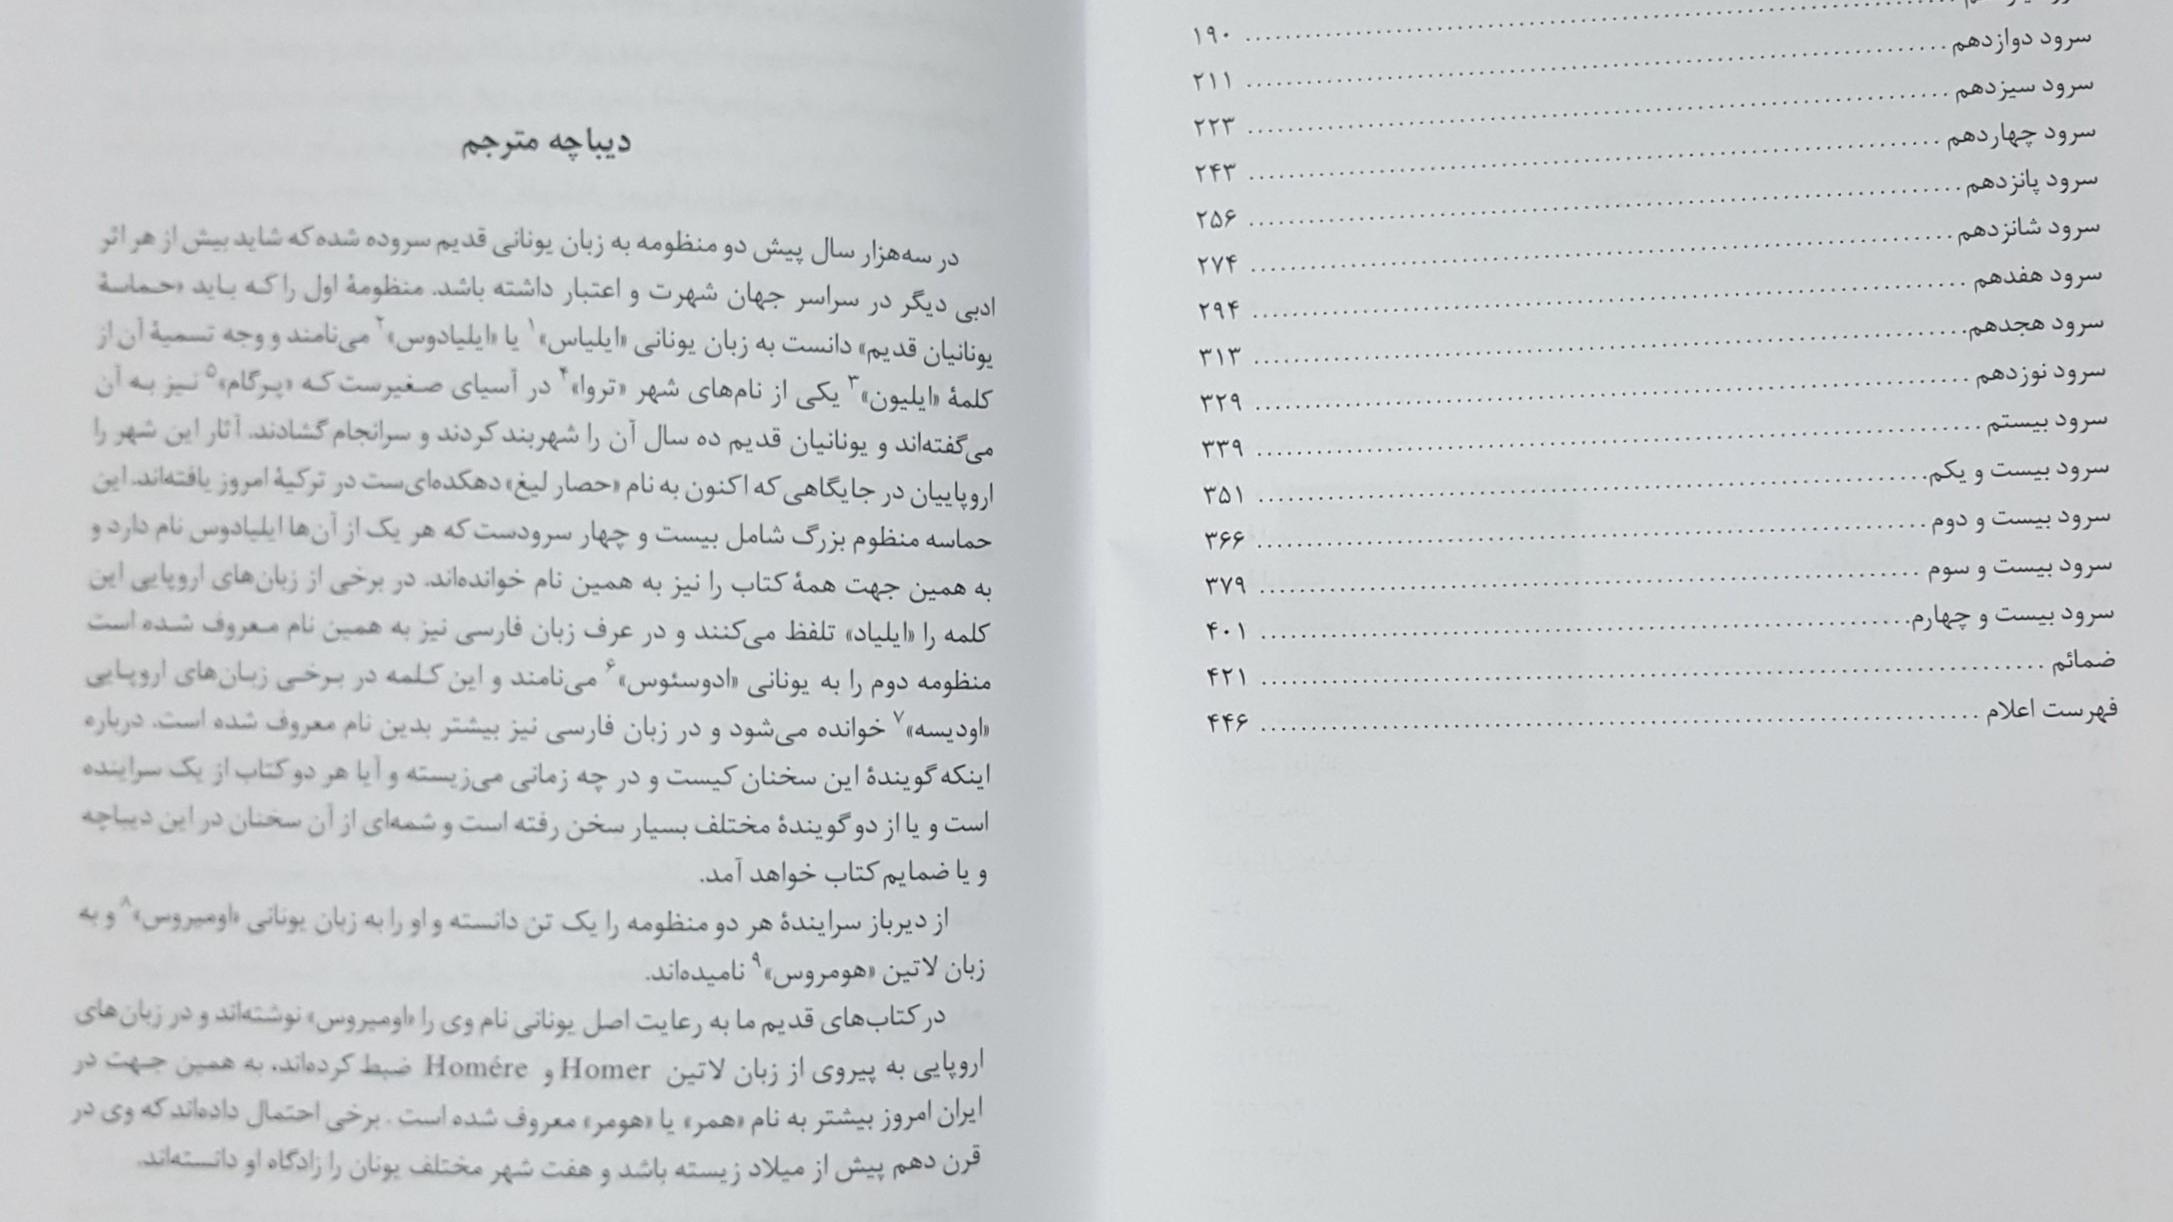 ۱۹۰
سرود دوازدهم ۲۱۱
سرود سیزدهم ۲۲۳
سرود چهاردهم ۲۴۳
سرود پانزدهم ۲۵۶
سرود شانزدهم ۲۷۴
سرود هفدهم ۲۹۴
سرود هجدهم ۳۱۳
سرود نوزدهم ۳۲۹
سرود بیستم ۳۳۹
سرود بیست و یکم ۳۵۱
سرود بیست و دوم ۳۶۶
سرود بیست و سوم ۳۷۹
سرود بیست و چهارم ۴۰۱
ضمائم ۴۲۱
فهرست اعلام ۴۴۶
دیباچه مترجم
در سه‌هزار سال پیش دو منظومه به زبان یونانی قدیم سروده شده که شاید بیش از هر اثر
ادبی دیگر در سراسر جهان شهرت و اعتبار داشته باشد. منظومهٔ اول را که باید «حماسهٔ
یونانیان قدیم» دانست به زبان یونانی «ایلیاس»۱ یا «ایلیادوس»۲ می‌نامند و وجه تسمیهٔ آن از
کلمهٔ «ایلیون»۳ یکی از نام‌های شهر «تروا»۴ در آسیای صغیرست که «پرگام»۵ نیز به آن
می‌گفته‌اند و یونانیان قدیم ده سال آن را شهربند کردند و سرانجام گشادند. آثار این شهر را
اروپاییان در جایگاهی که اکنون به نام «حصار لیغ» دهکده‌ای‌ست در ترکیهٔ امروز یافته‌اند. این
حماسه منظوم بزرگ شامل بیست و چهار سرودست که هر یک از آن‌ها ایلیادوس نام دارد و
به همین جهت همهٔ کتاب را نیز به همین نام خوانده‌اند. در برخی از زبان‌های اروپایی این
کلمه را «ایلیاد» تلفظ می‌کنند و در عرف زبان فارسی نیز به همین نام معروف شده است
منظومه دوم را به یونانی «ادوسئوس»۶ می‌نامند و این کلمه در برخی زبان‌های اروپایی
«اودیسه»۷ خوانده می‌شود و در زبان فارسی نیز بیشتر بدین نام معروف شده است. درباره
اینکه گویندهٔ این سخنان کیست و در چه زمانی می‌زیسته و آیا هر دو کتاب از یک سراینده
است و یا از دو گویندهٔ مختلف بسیار سخن رفته است و شمه‌ای از آن سخنان در این دیباچه
و یا ضمایم کتاب خواهد آمد.
از دیرباز سرایندهٔ هر دو منظومه را یک تن دانسته و او را به زبان یونانی «اومیروس»۸ و به
زبان لاتین «هومروس»۹ نامیده‌اند.
در کتاب‌های قدیم ما به رعایت اصل یونانی نام وی را «اومیروس» نوشته‌اند و در زبان‌های
اروپایی به پیروی از زبان لاتین Homer و Homére ضبط کرده‌اند، به همین جهت در
ایران امروز بیشتر به نام «همر» یا «هومر» معروف شده است. برخی احتمال داده‌اند که وی در
قرن دهم پیش از میلاد زیسته باشد و هفت شهر مختلف یونان را زادگاه او دانسته‌اند.